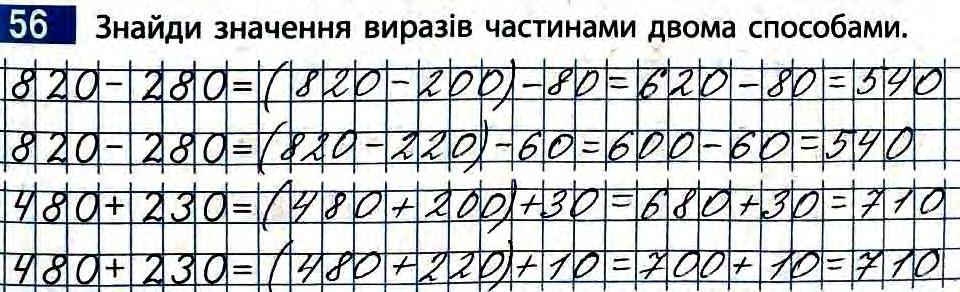 56 Знайди значення виразів частинами двома способами.
820 - 280 = (820 - 200) - 80 = 620 - 80 = 540
820 - 280 = (820 - 220) - 60 = 600 - 60 = 540
480 + 230 = (480 + 200) + 30 = 680 + 30 = 710
480 + 230 = (480 + 220) + 10 = 700 + 10 = 710